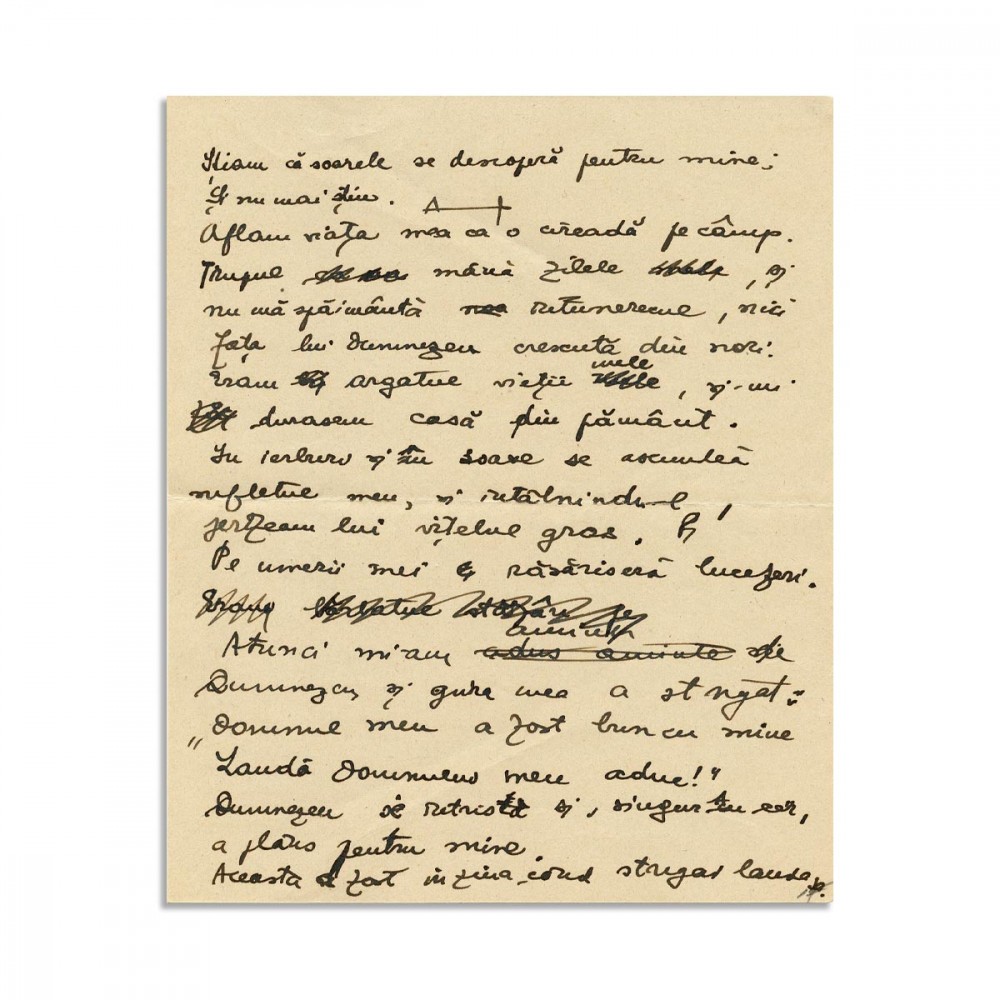 Știam că soarele se descoperă pentru mine;
Și nu mai știu.
Aflam viața mea ca o cireadă pe câmp.
Trupul mâna zilele, și
nu mă spăimântă întunerecul, nici
fața lui Dumnezeu crescută din nori.
mele
Eram argatul vieții, și-mi
durasem casă din pământ.
În ierburi și în soare se ascundea
sufletul meu, și întâlnindu-l
jertfeam lui vițelul gras.
Pe umerii mei răsăriseră luceferi.
Eram stăpân pe
amintit
Atunci mi-am adus aminte de
Dumnezeu și gura mea a strigat:
„Domnul meu a fost bun cu mine
Laudă Domnului meu aduc!"
Dumnezeu se întrista și, singur în cer,
a plâns pentru mine.
Aceasta a fost în ziua când strigai lauda